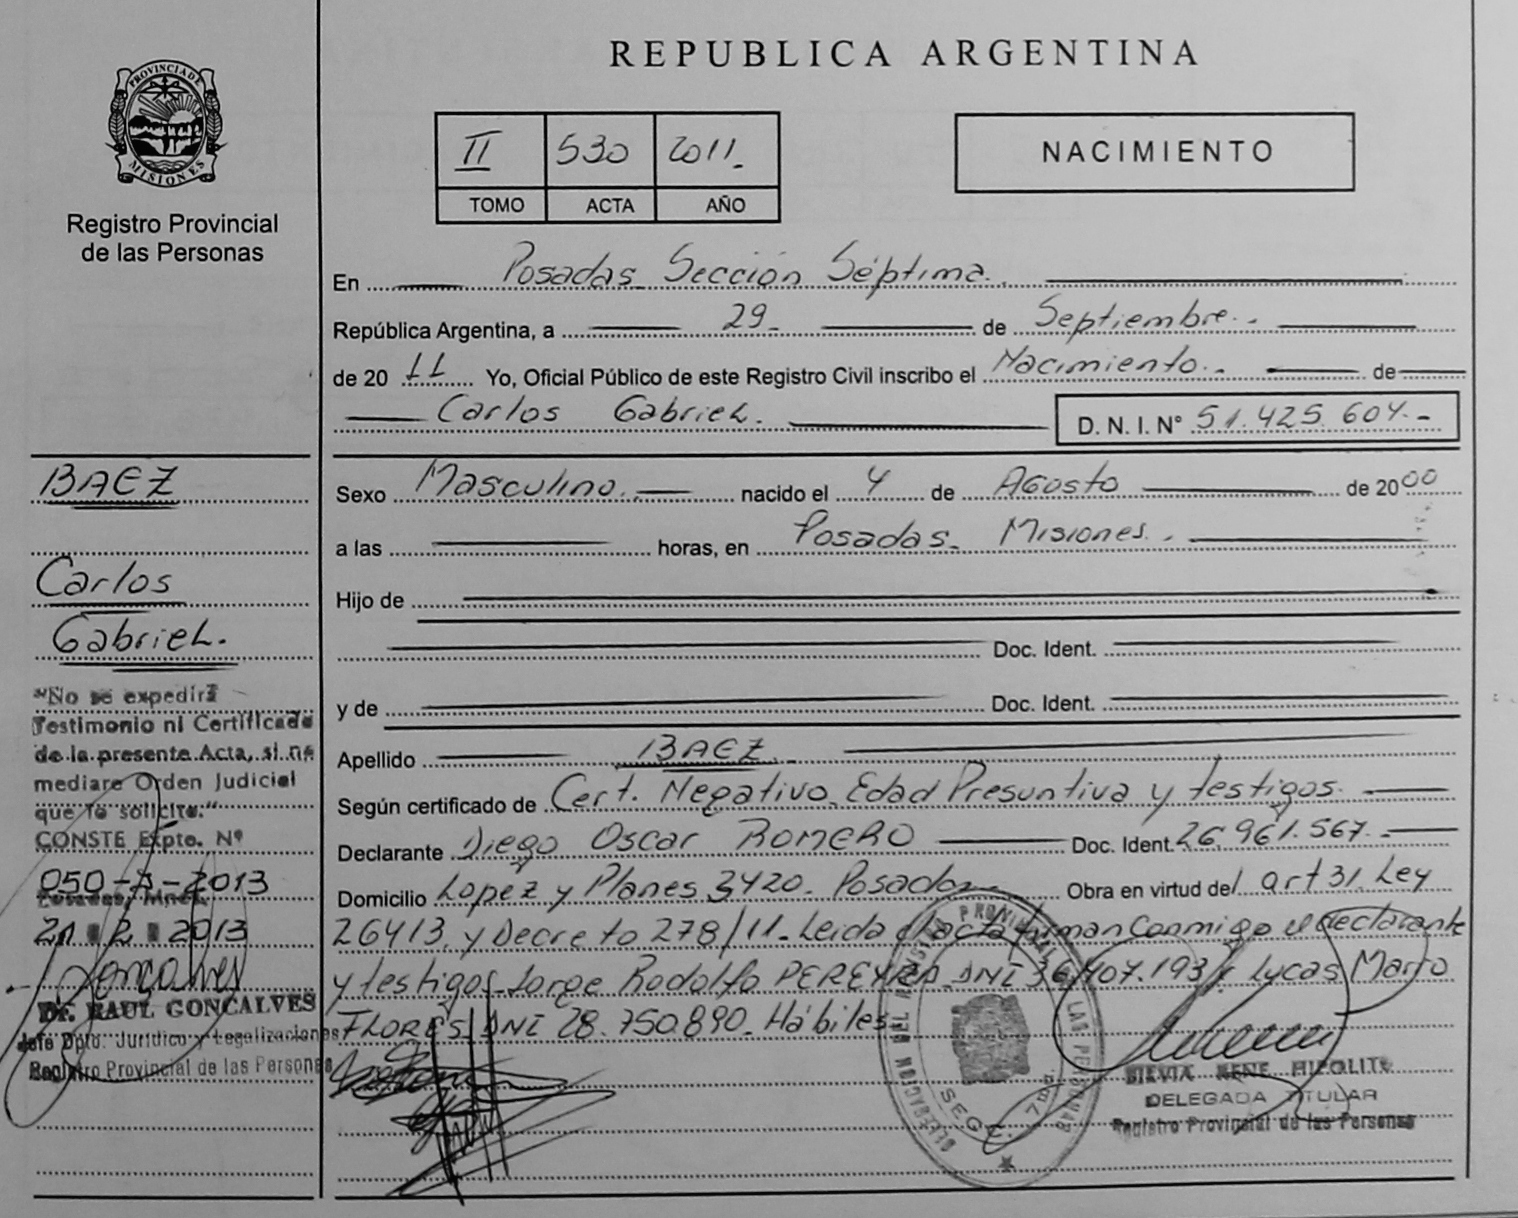 REPUBLICA ARGENTINA
PROVINCIA DE
MISIONES
Registro Provincial
de las Personas
II 530 2011.
TOMO ACTA AÑO
NACIMIENTO
En Posadas Sección Séptima.
República Argentina, a 29 de Septiembre.
de 20 11 Yo, Oficial Público de este Registro Civil inscribo el Nacimiento. de
Carlos Gabriel. D. N. I. N° 51.425.604.-
BAEZ
Carlos
Gabriel.
"No se expedirá
Testimonio ni Certificado
de la presente Acta, si no
mediare Orden Judicial
que lo solicite."
CONSTE Expto. Nº
050-A-2013
Posadas, Mnes.
21 2 2013
Dr. RAUL GONCALVES
Jefe Dpto. Jurídico y Legalizaciones
Registro Provincial de las Personas
Sexo Masculino. nacido el 4 de Agosto de 2000
a las horas, en Posadas. Misiones.
Hijo de
Doc. Ident.
y de Doc. Ident.
Apellido BAEZ.
Según certificado de Cert. Negativo, Edad Presuntiva y testigos.
Declarante Diego Oscar ROMERO Doc. Ident. 26.961.567.-
Domicilio Lopez y Planes 3420. Posadas Obra en virtud del art 31. Ley
26413, y Decreto 278/11. Leida el acta firman Conmigo el declarante
y testigos Jorge Rodolfo PEREYRA DNI 36.407.193 y Lucas Mario
FLORES DNI 28.750.890. Hábiles
SILVIA RENE HIPOLITO
DELEGADA TITULAR
Registro Provincial de las Personas